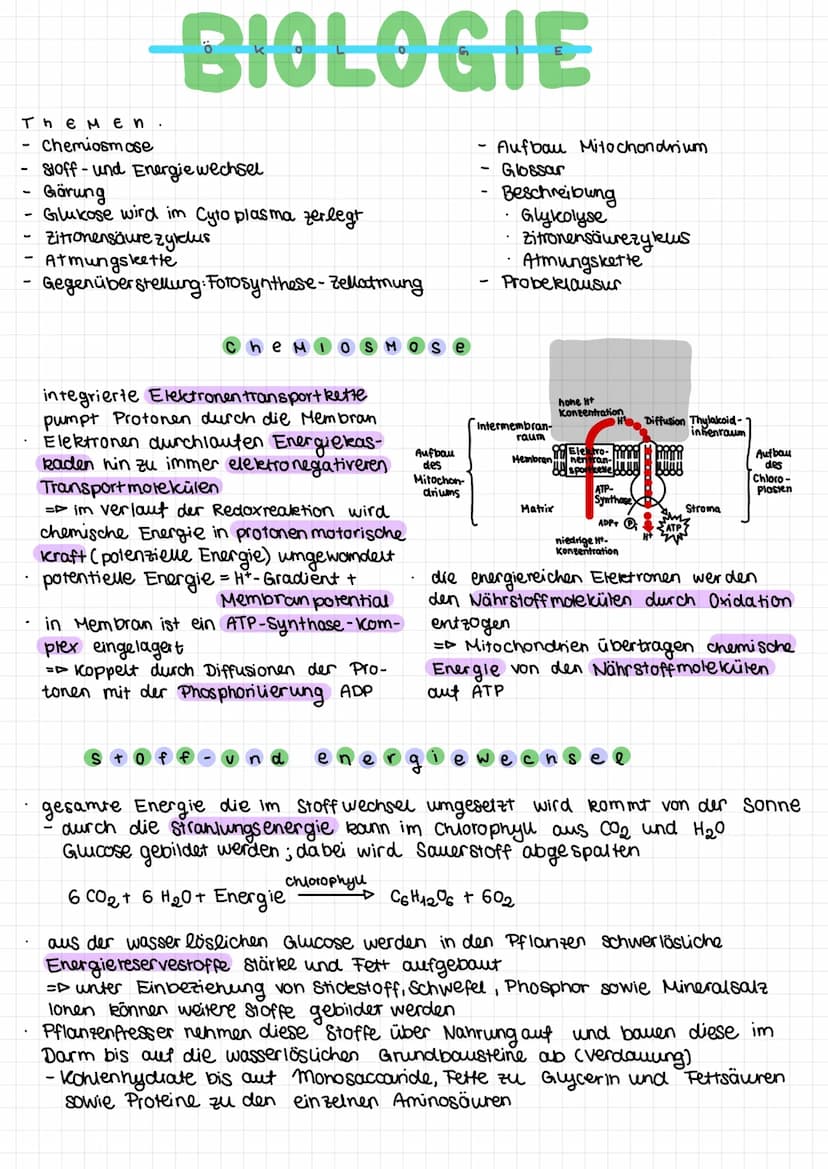 BIOLOGIE
ÖKOLOGIE
Themen.
- Chemiosmose
- Stoff- und Energiewechsel
- Gärung
- Glukose wird im Cytoplasma zerlegt
- Zitronensäurezyklus
- Atmungskette
- Gegenüberstellung: Fotosynthese - Zellatmung
- Aufbau Mitochondrium
- Glossar
- Beschreibung
· Glykolyse
· Zitronensäurezyklus
· Atmungskette
- Probeklausur
Chemiosmose
integrierte Elektronentransportkette
pumpt Protonen durch die Membran
· Elektronen durchlaufen Energiekas-
kaden hin zu immer elektronegativeren
Transportmolekülen
=> im verlauf der Redoxreaktion wird
chemische Energie in protonenmotorische
Kraft (potenzielle Energie) umgewandelt
· potentielle Energie = H⁺-Gradient +
Membranpotential
· in Membran ist ein ATP-Synthase-Kom-
plex eingelagert
=> Koppelt durch Diffusionen der Pro-
tonen mit der Phosphorilierung ADP
hohe H⁺
Konzentration
H⁺
Diffusion
Intermembran-
raum
Thylakoid-
innenraum
Aufbau
des
Mitochon-
driums
Membran
Elektro-
nentran-
sportkette
Aufbau
des
Chloro-
plasten
ATP-
Synthase
Matrix
Stroma
ADP+ Pᵢ
ATP
H⁺
niedrige H⁺-
Konzentration
· die energiereichen Elektronen werden
den Nährstoffmolekülen durch Oxidation
entzogen
=> Mitochondrien übertragen chemische
Energie von den Nährstoffmolekülen
auf ATP
Stoff- und energiewechsel
· gesamte Energie die im Stoffwechsel umgesetzt wird kommt von der Sonne
- durch die Strahlungsenergie kann im Chlorophyll aus CO₂ und H₂O
Glucose gebildet werden; dabei wird Sauerstoff abgespalten
Chlorophyll
6 CO₂ + 6 H₂O + Energie → C₆H₁₂O₆ + 6O₂
· aus der wasserlöslichen Glucose werden in den Pflanzen schwerlösliche
Energiereservestoffe Stärke und Fett aufgebaut
=> unter Einbeziehung von Stickstoff, Schwefel, Phosphor sowie Mineralsalz
Ionen können weitere Stoffe gebildet werden
· Pflanzenfresser nehmen diese Stoffe über Nahrung auf und bauen diese im
Darm bis auf die wasserlöslichen Grundbausteine ab (Verdauung)
- Kohlenhydrate bis auf Monosaccaride, Fette zu Glycerin und Fettsäuren
sowie Proteine zu den einzelnen Aminosäuren